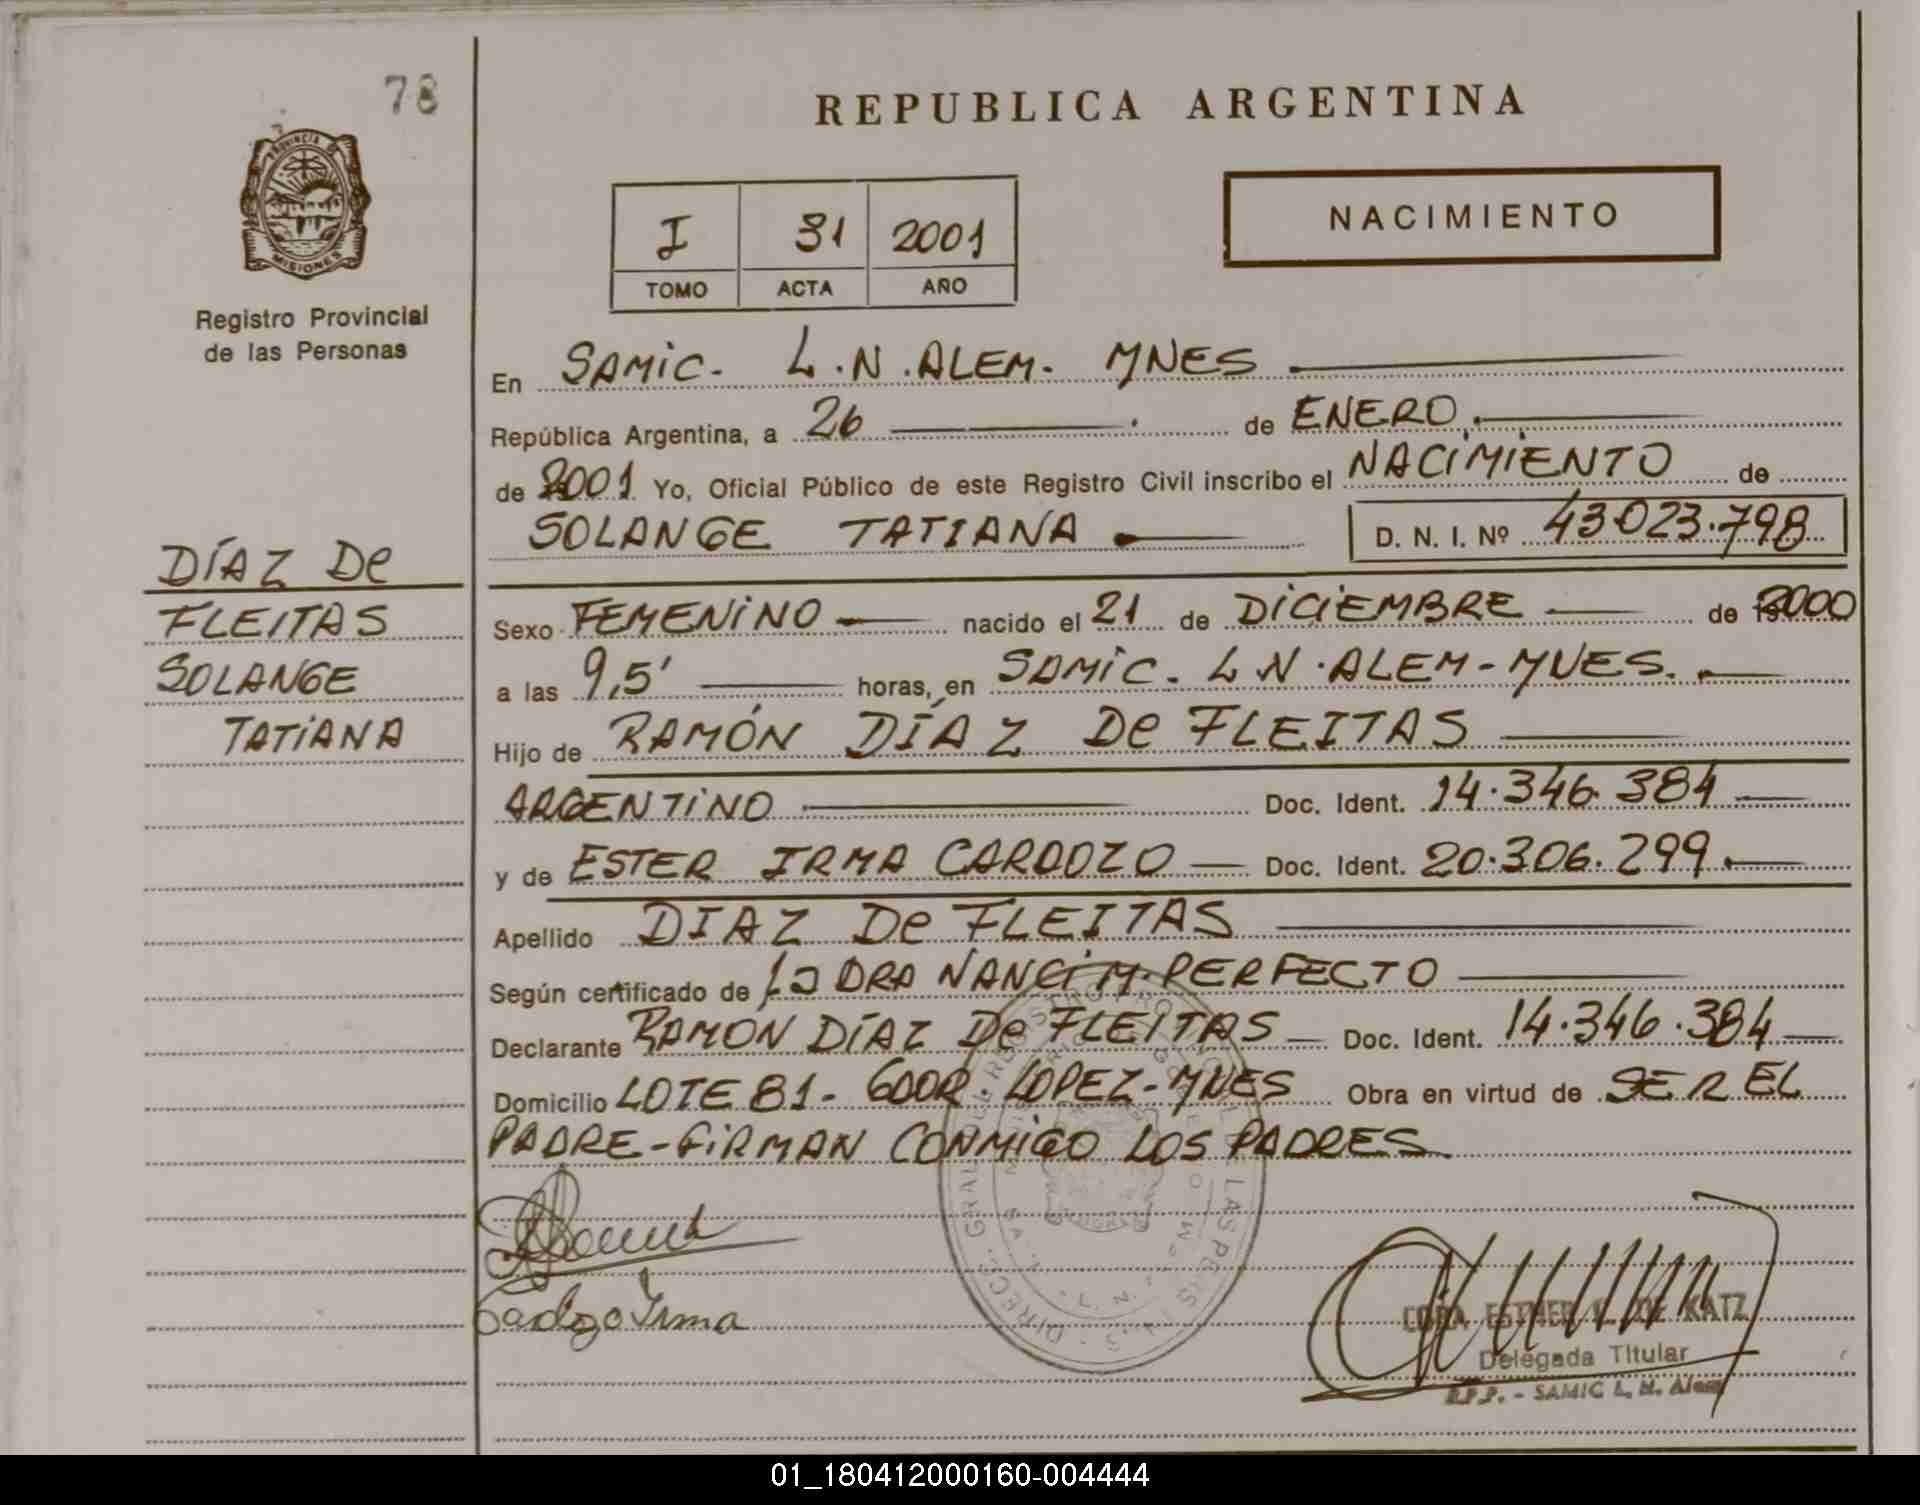 78
REPUBLICA ARGENTINA
PROVINCIA DE
MISIONES
Registro Provincial
de las Personas
I 31 2001
TOMO ACTA AÑO
NACIMIENTO
En SAMIC. L.N.ALEM. MNES
República Argentina, a 26 de ENERO
de 2001 Yo, Oficial Público de este Registro Civil inscribo el NACIMIENTO de
SOLANGE TATIANA D. N. I. Nº 43.023.798
DÍAZ De
FLEITAS
SOLANGE
TATIANA
Sexo FEMENINO nacido el 21 de DICIEMBRE de 2000
a las 9,5' horas, en SAMIC. L N. ALEM - MNES.
Hijo de RAMÓN DÍAZ De FLEITAS
ARGENTINO Doc. Ident. 14.346.384
y de ESTER IRMA CARDOZO Doc. Ident. 20.306.299
Apellido DIAZ De FLEITAS
Según certificado de la DRA NANCI M. PERFECTO
Declarante RAMON DÍAZ De FLEITAS Doc. Ident. 14.346.384
Domicilio LOTE 81 - GDOR LOPEZ - MNES Obra en virtud de SER EL
PADRE - FIRMAN CONMIGO LOS PADRES
Cardozo Irma
ESTHER KATZ
Delegada Titular
R.P.P. - SAMIC L. N. Alem
01_180412000160-004444